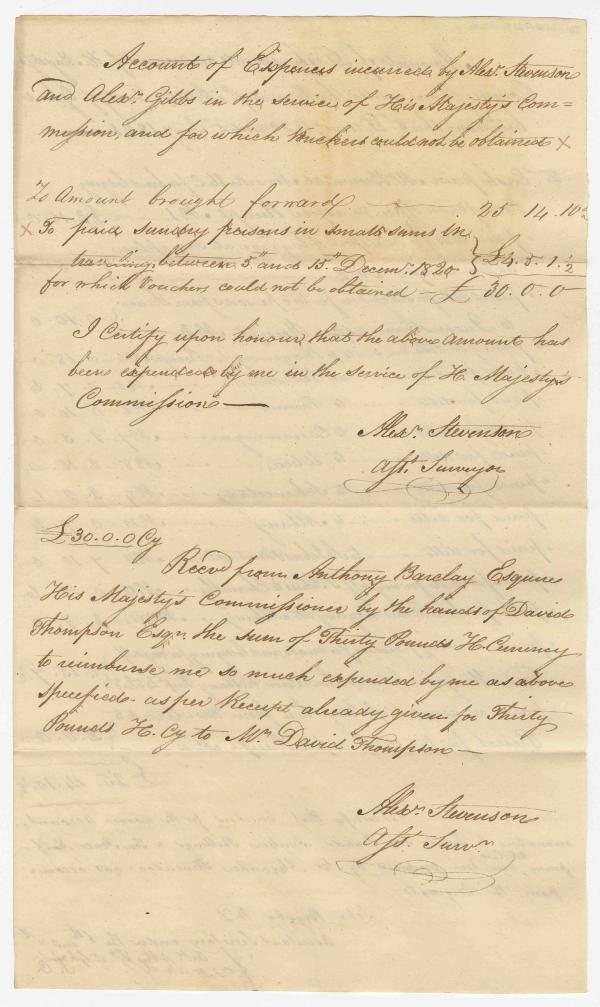 Account of Expences incurred by Alexr. Stevenson
and Alexr. Gibbs in the service of His Majesty's Com=
mission, and for which Vouchers could not be obtained ×
To Amount brought forward 25 14. 10½
× To paid sundry persons in small sums in
travelling between 5th and 15th Decemr. 1820 } £4. 5. 1.½
for which Vouchers could not be obtained — £ 30. 0. 0
I Certify upon honour, that the above Amount has
been expended by me in the service of H. Majesty's
Commission —
Alexr. Stevenson
Asst. Surveyor
£30..0..0 Cy
Receved from Anthony Barclay Esquire
His Majesty's Commissioner by the hands of David
Thompson Esqr. the sum of Thirty Pounds H. Currency
to reimburse me so much expended by me as above
specified as per Receipt already given for Thirty
Pounds H. Cy to Mr. David Thompson —
Alexr. Stevenson
Asst. Survr.